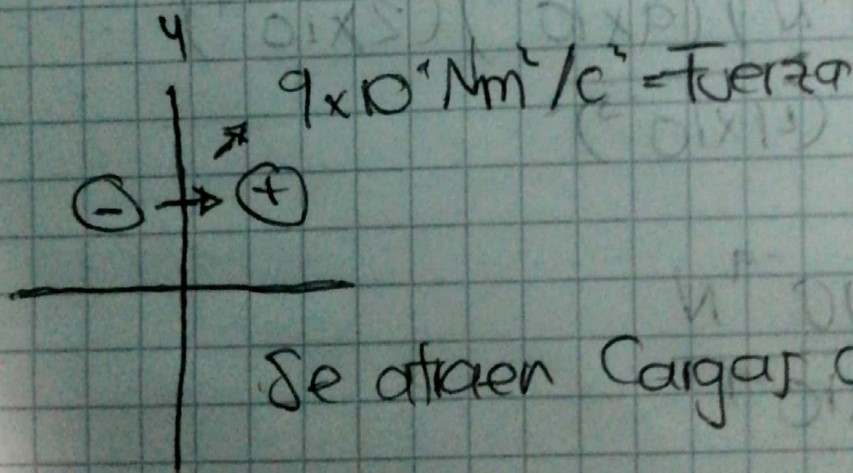 y
9x10⁹ Nm²/c² = Fuerza
- +
Se atraen Cargas